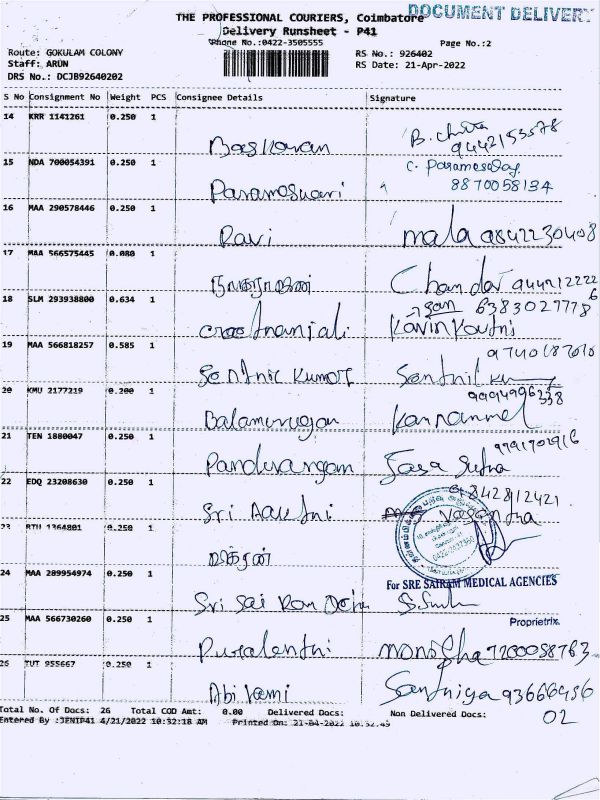 DOCUMENT DELIVERY
THE PROFESSIONAL COURIERS, Coimbatore
Delivery Runsheet - P41
Phone No.:0422-3505555
Page No.:2
Route: GOKULAM COLONY
RS No.: 926402
Staff: ARUN
RS Date: 21-Apr-2022
DRS No.: DCJB92640202
S No Consignment No Weight PCS Consignee Details Signature
14 KRR 1141261 0.250 1
Baskaran B. Chitra 9442153578
15 NDA 700054391 0.250 1
Parameswari 8870058134
16 MAA 290578446 0.250 1
Ravi mala 9842230408
17 MAA 566575445 0.080 1
Chandar
18 SLM 293938800 0.634 1
son 6383027778
Geethanjali
19 MAA 566818257 0.585 1
Senthil Kumar
20 KMU 2177219 0.200 1
Balamurugan Kannammel
21 TEN 1880047 0.250 1
9791702916
Pandurangam
22 EDQ 23208630 0.250 1
9842812421
Sri Aakthi Vasantha
23 BTU 1364801 0.250 1
24 MAA 289954974 0.250 1
For SRE SAIRAM MEDICAL AGENCIES
Sri Sai Ram
25 MAA 566730260 0.250 1
Proprietrix.
Monisha 7200058763
26 TUT 955667 0.250 1
Abirami Santhiya 93666956
02
Total No. Of Docs: 26 Total COD Amt: 0.00 Delivered Docs: Non Delivered Docs:
Entered By :JENIP41 4/21/2022 10:32:18 AM Printed On: 21-04-2022 10:32:45